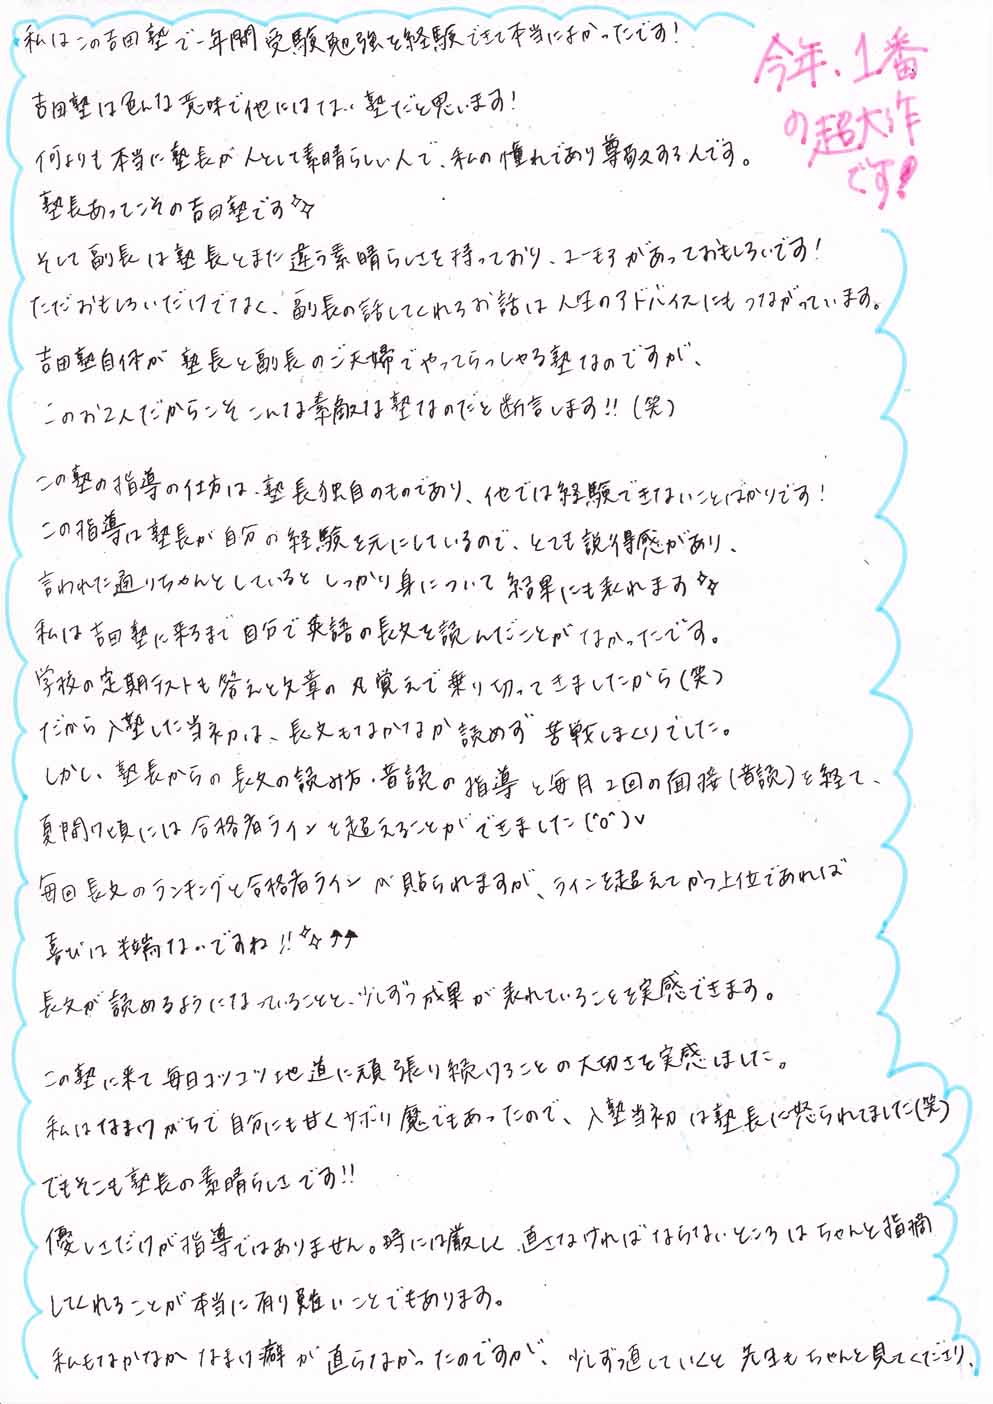 私はこの吉田塾で一年間受験勉強を経験できて本当によかったです!
今年、1番
の超大作
です!
吉田塾は色んな意味で他にはない塾だと思います!
何よりも本当に塾長が人として素晴らしい人で、私の憧れであり尊敬する人です。
塾長あってこその吉田塾です☆☆
そして副長は塾長とまた違う素晴らしさを持っており、ユーモアがあっておもしろいです!
ただおもしろいだけでなく、副長の話してくれるお話は人生のアドバイスにもつながっています。
吉田塾自体が塾長と副長のご夫婦でやってらっしゃる塾なのですが、
このお2人だからこそこんな素敵な塾なのだと断言します!!(笑)
この塾の指導の仕方は、塾長独自のものであり、他では経験できないことばかりです!
この指導は塾長が自分の経験を元にしているので、とても説得感があり、
言われた通りちゃんとしているとしっかり身について結果にも表れます☆☆
私は吉田塾に来るまで自分で英語の長文を読んだことがなかったです。
学校の定期テストも答えと文章の丸覚えで乗り切ってきましたから(笑)
だから入塾した当初は、長文もなかなか読めず苦戦しまくりでした。
しかし、塾長からの長文の読み方・音読の指導と毎月2回の面接(音読)を経て、
夏開け頃には合格者ラインを超えることができました(^o^)v
毎回長文のランキングと合格者ラインが貼られますが、ラインを超えてかつ上位であれば
喜びは半端ないですね!!☆☆↑↑
長文が読めるようになっていることと、少しずつ成果が表れていることを実感できます。
この塾に来て毎日コツコツ地道に頑張り続けることの大切さを実感しました。
私はなまけがちで自分にも甘くサボり魔でもあったので、入塾当初は塾長に怒られてました(笑)
でもそこも塾長の素晴らしさです!!
優しさだけが指導ではありません。時には厳しく直さなければならないところはちゃんと指摘
してくれることが本当に有り難いことでもあります。
私もなかなかなまけ癖が直らなかったのですが、少しずつ直していくと先生もちゃんと見てくださり、